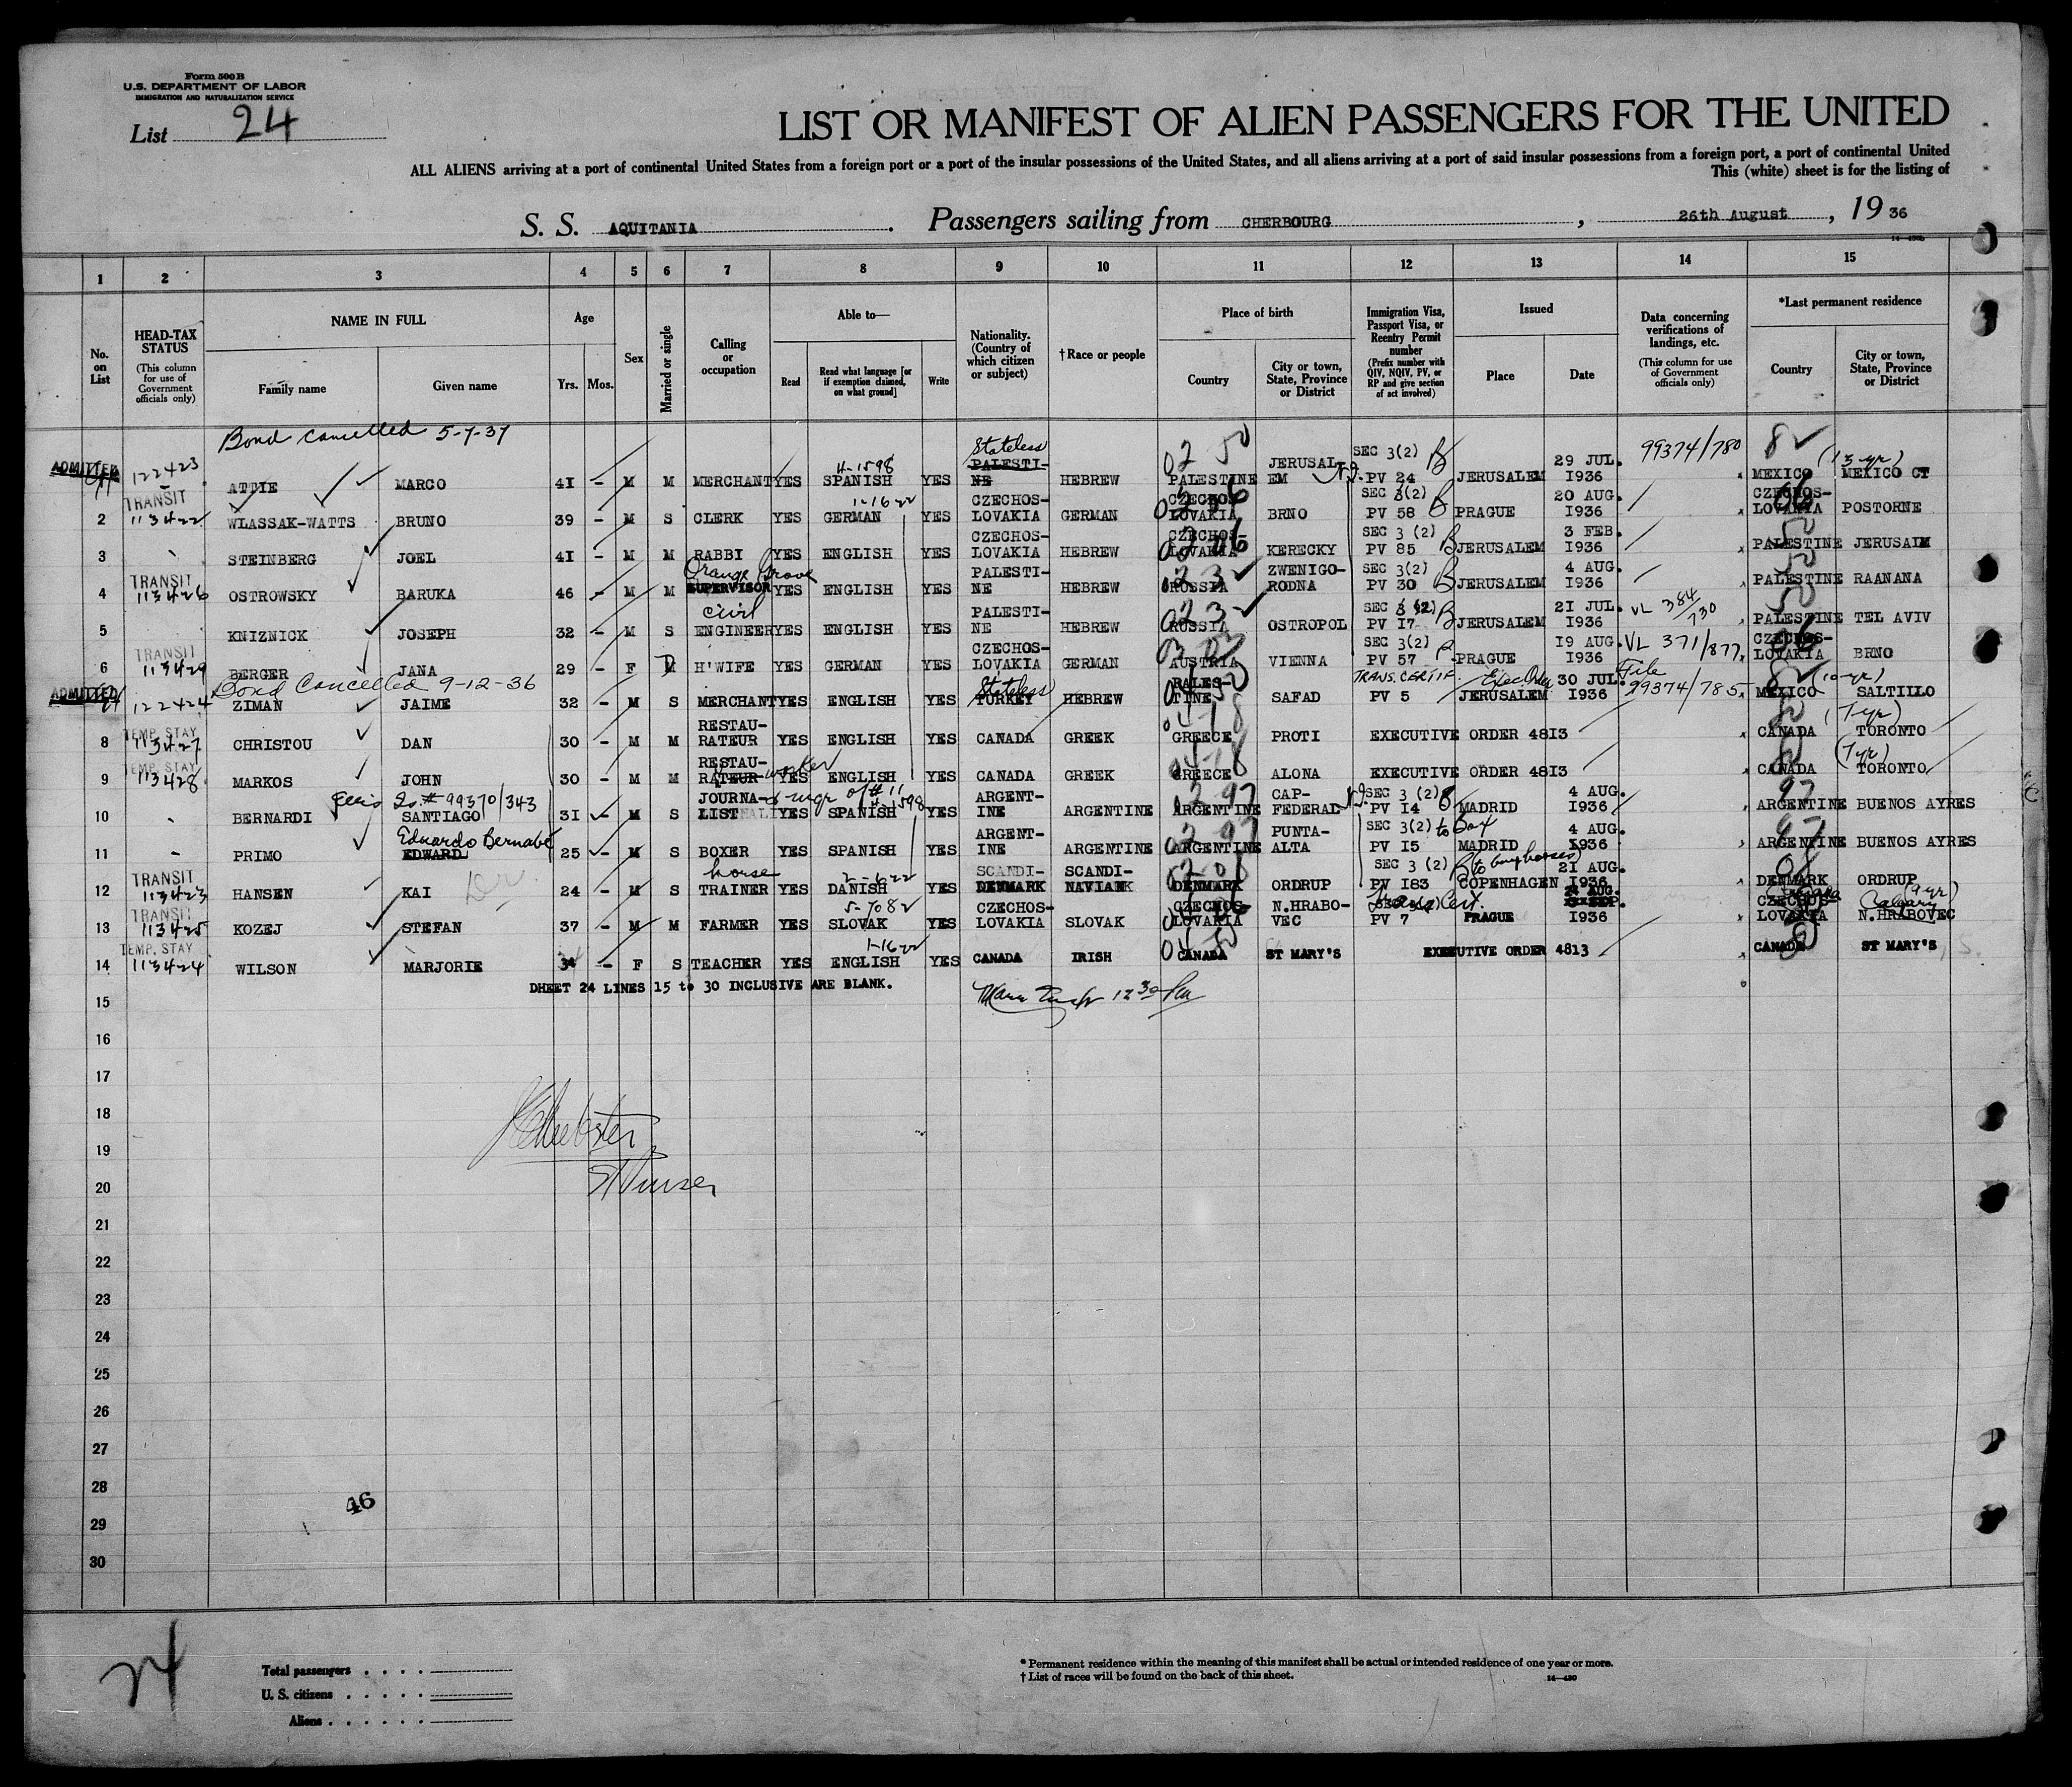 Form 500B
U.S. DEPARTMENT OF LABOR
IMMIGRATION AND NATURALIZATION SERVICE
List 24
LIST OR MANIFEST OF ALIEN PASSENGERS FOR THE UNITED
ALL ALIENS arriving at a port of continental United States from a foreign port or a port of the insular possessions of the United States, and all aliens arriving at a port of said insular possessions from a foreign port, a port of continental United
This (white) sheet is for the listing of
S. S. AQUITANIA. Passengers sailing from CHERBOURG, 26th August, 1936
1 2 3 4 5 6 7 8 9 10 11 12 13 14 15
No. on List
HEAD-TAX STATUS (This column for use of Government officials only)
NAME IN FULL
Family name Given name
Age Yrs. Mos.
Sex
Married or single
Calling or occupation
Able to—
Read Read what language [or if exemption claimed, on what ground] Write
Nationality. (Country of which citizen or subject)
†Race or people
Place of birth
Country City or town, State, Province or District
Immigration Visa, Passport Visa, or Reentry Permit number (Prefix number with QIV, NQIV, PV, or RP and give section of act involved)
Issued
Place Date
Data concerning verifications of landings, etc. (This column for use of Government officials only)
*Last permanent residence
Country City or town, State, Province or District
Bond cancelled 5-7-37
ADMITTED 122423 ATTIE MARCO 41 - M M MERCHANT YES 4-1598 SPANISH YES Stateless PALESTI-NE HEBREW 02 50 PALESTINE JERUSALEM SEC 3(2) PV 24 JERUSALEM 29 JUL. 1936 99374/780 82 MEXICO (13 yr) MEXICO CT
2 TRANSIT 113422 WLASSAK-WATTS BRUNO 39 - M S CLERK YES 1-1622 GERMAN YES CZECHOS-LOVAKIA GERMAN CZECHOS-LOVAKIA BRNO SEC 3(2) B PV 58 PRAGUE 20 AUG. 1936 CZECHOS-LOVAKIA POSTORNE
3 STEINBERG JOEL 41 - M M RABBI YES ENGLISH YES CZECHOS-LOVAKIA HEBREW CZECHOS-LOVAKIA KERECKY SEC 3 (2) B PV 85 JERUSALEM 3 FEB. 1936 50 PALESTINE JERUSALM
4 TRANSIT 113426 OSTROWSKY BARUKA 46 - M M Orange Grove SUPERVISOR YES ENGLISH YES PALESTI-NE HEBREW 023 RUSSIA ZWENIGO-RODNA SEC 3(2) B PV 30 JERUSALEM 4 AUG. 1936 50 PALESTINE RAANANA
5 KNIZNICK JOSEPH 32 - M S civil ENGINEER YES ENGLISH YES PALESTI-NE HEBREW 023 RUSSIA OSTROPOL SEC 3 (2) B PV 17 JERUSALEM 21 JUL. 1936 VL 384/730 50 PALESTINE TEL AVIV
6 TRANSIT 113429 BERGER JANA 29 - F M H'WIFE YES GERMAN YES CZECHOS-LOVAKIA GERMAN AUSTRIA VIENNA SEC 3(2) PV 57 PRAGUE 19 AUG. 1936 VL 371/877 CZECHOS-LOVAKIA BRNO
Bond Cancelled 9-12-36
ADMITTED 122424 ZIMAN JAIME 32 - M S MERCHANT YES ENGLISH YES Stateless TURKEY HEBREW PALES-TINE SAFAD TRANS. CERTIF. PV 5 JERUSALEM 30 JUL. 1936 File 99374/785 82 MEXICO (10 yr) SALTILLO
8 TEMP. STAY 113427 CHRISTOU DAN 30 - M M RESTAU-RATEUR YES ENGLISH YES CANADA GREEK 0418 GREECE PROTI EXECUTIVE ORDER 4813 80 CANADA (7 yr) TORONTO
9 TEMP. STAY 113428 MARKOS JOHN 30 - M M RESTAU-RATEUR worker YES ENGLISH YES CANADA GREEK 0418 GREECE ALONA EXECUTIVE ORDER 4813 80 CANADA (7 yr) TORONTO
10 BERNARDI #99370/343 SANTIAGO 31 - M S JOURNA-LIST & mgr of #11 YES 4-1598 SPANISH YES ARGENT-INE ARGENTINE 0297 ARGENTINE CAP-FEDERAL SEC 3 (2) PV 14 MADRID 4 AUG. 1936 97 ARGENTINE BUENOS AYRES
11 - PRIMO Eduardo Bernabé EDWARD 25 - M S BOXER YES SPANISH YES ARGENT-INE ARGENTINE 0297 ARGENTINE PUNTA-ALTA SEC 3(2) to Box PV 15 MADRID 4 AUG. 1936 97 ARGENTINE BUENOS AYRES
12 TRANSIT 113423 HANSEN KAI 24 - M S horse TRAINER YES 2-1622 DANISH YES SCANDI- DENMARK SCANDI-NAVIAN DENMARK ORDRUP SEC 3 (2) B (to buy horses) PV 183 COPENHAGEN 21 AUG. 1936 DENMARK ORDRUP
13 TRANSIT 113425 KOZEJ STEFAN 37 - M M FARMER YES 5-7082 SLOVAK YES CZECHOS-LOVAKIA SLOVAK CZECHOS-LOVAKIA N.HRABO-VEC Trans Cert. PV 7 PRAGUE AUG. 1936 CZECHOS-LOVAKIA Canada (9 yr) Calgary N.HRABOVEC
14 TEMP. STAY 113424 WILSON MARJORIE 34 - F S TEACHER YES 1-1622 ENGLISH YES CANADA IRISH CANADA ST MARY'S EXECUTIVE ORDER 4813 80 CANADA ST MARY'S
DHEET 24 LINES 15 to 30 INCLUSIVE ARE BLANK.
15
16
17
18
19
20
21
22
23
24
25
26
27
28
46
29
30
24
Total passengers . . . .
U. S. citizens . . . . .
Aliens . . . . . .
* Permanent residence within the meaning of this manifest shall be actual or intended residence of one year or more.
† List of races will be found on the back of this sheet.